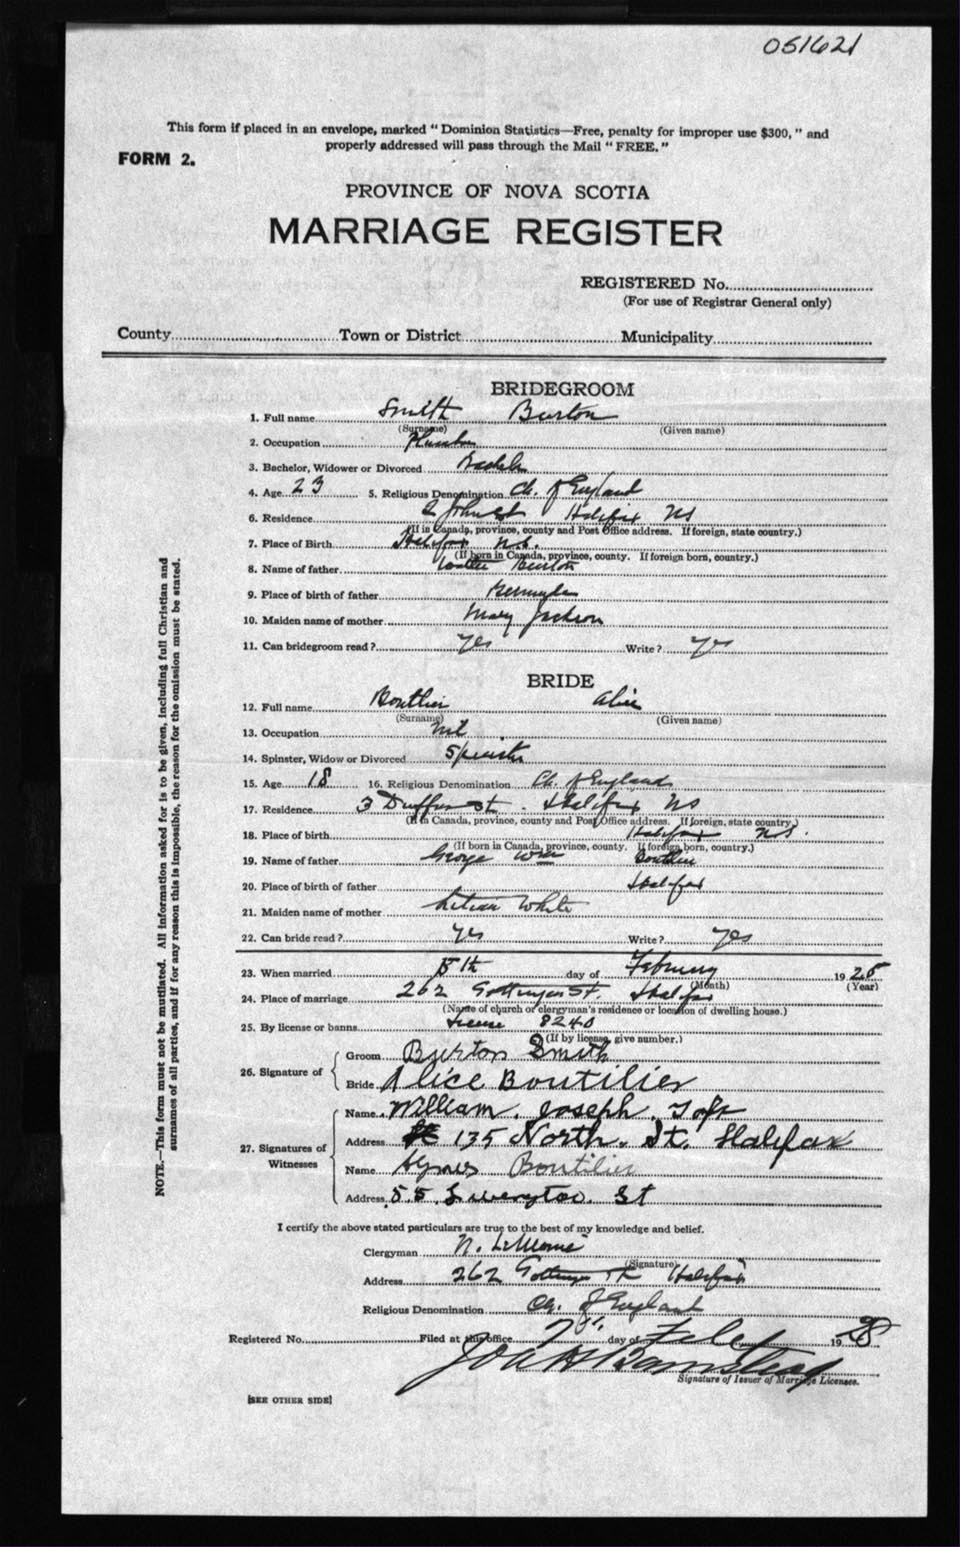 051621
This form if placed in an envelope, marked "Dominion Statistics—Free, penalty for improper use $300," and
properly addressed will pass through the Mail "FREE."
FORM 2.
PROVINCE OF NOVA SCOTIA
MARRIAGE REGISTER
REGISTERED No.
(For use of Registrar General only)
County Town or District Municipality
BRIDEGROOM
1. Full name Smith Burton
(Surname) (Given name)
2. Occupation Plumber
3. Bachelor, Widower or Divorced Bachelor
4. Age 23 5. Religious Denomination Ch. of England
6. Residence John St Halifax NS
(If in Canada, province, county and Post Office address. If foreign, state country.)
7. Place of Birth Halifax N.S.
(If born in Canada, province, county. If foreign born, country.)
8. Name of father Burton
9. Place of birth of father
10. Maiden name of mother Mary Jackson
11. Can bridegroom read? Yes Write? Yes
BRIDE
12. Full name Boutlier Alice
(Surname) (Given name)
13. Occupation Nil
14. Spinster, Widow or Divorced Spinster
15. Age 18 16. Religious Denomination Ch. of England
17. Residence 3 Duffus St. Halifax NS
(If in Canada, province, county and Post Office address. If foreign, state country.)
18. Place of birth Halifax NS.
(If born in Canada, province, county. If foreign born, country.)
19. Name of father George Wm Boutlier
20. Place of birth of father Halifax
21. Maiden name of mother White
22. Can bride read? Yes Write? Yes
23. When married 5th day of February 1928
(Month) (Year)
24. Place of marriage 262 Gottingen St. Halifax
(Name of church or clergyman's residence or location of dwelling house.)
25. By license or banns License 8240
(If by license, give number.)
26. Signature of
Groom Burton Smith
Bride Alice Boutilier
27. Signatures of Witnesses
Name William Joseph
Address 135 North. St. Halifax
Name Boutilier
Address 55 St
I certify the above stated particulars are true to the best of my knowledge and belief.
Clergyman N.
(Signature)
Address 262 Gottingen St Halifax
Religious Denomination Ch. of England
Registered No. Filed at this office 7 day of Feb 1928
Signature of Issuer of Marriage Licenses.
[SEE OTHER SIDE]
NOTE.—This form must not be mutilated. All information asked for is to be given, including full Christian and
surnames of all parties, and if for any reason this is impossible, the reason for the omission must be stated.